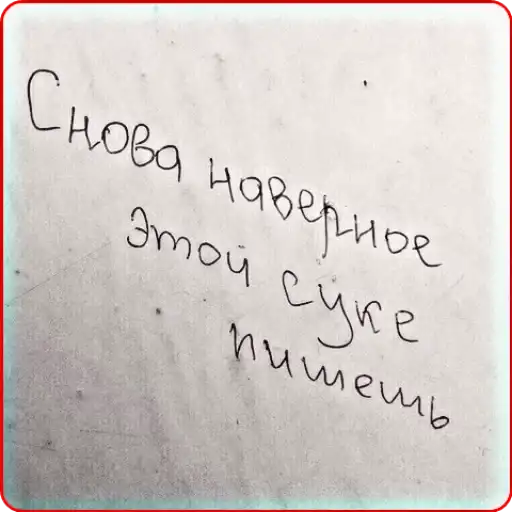 Снова наверное
этой суке
пишешь